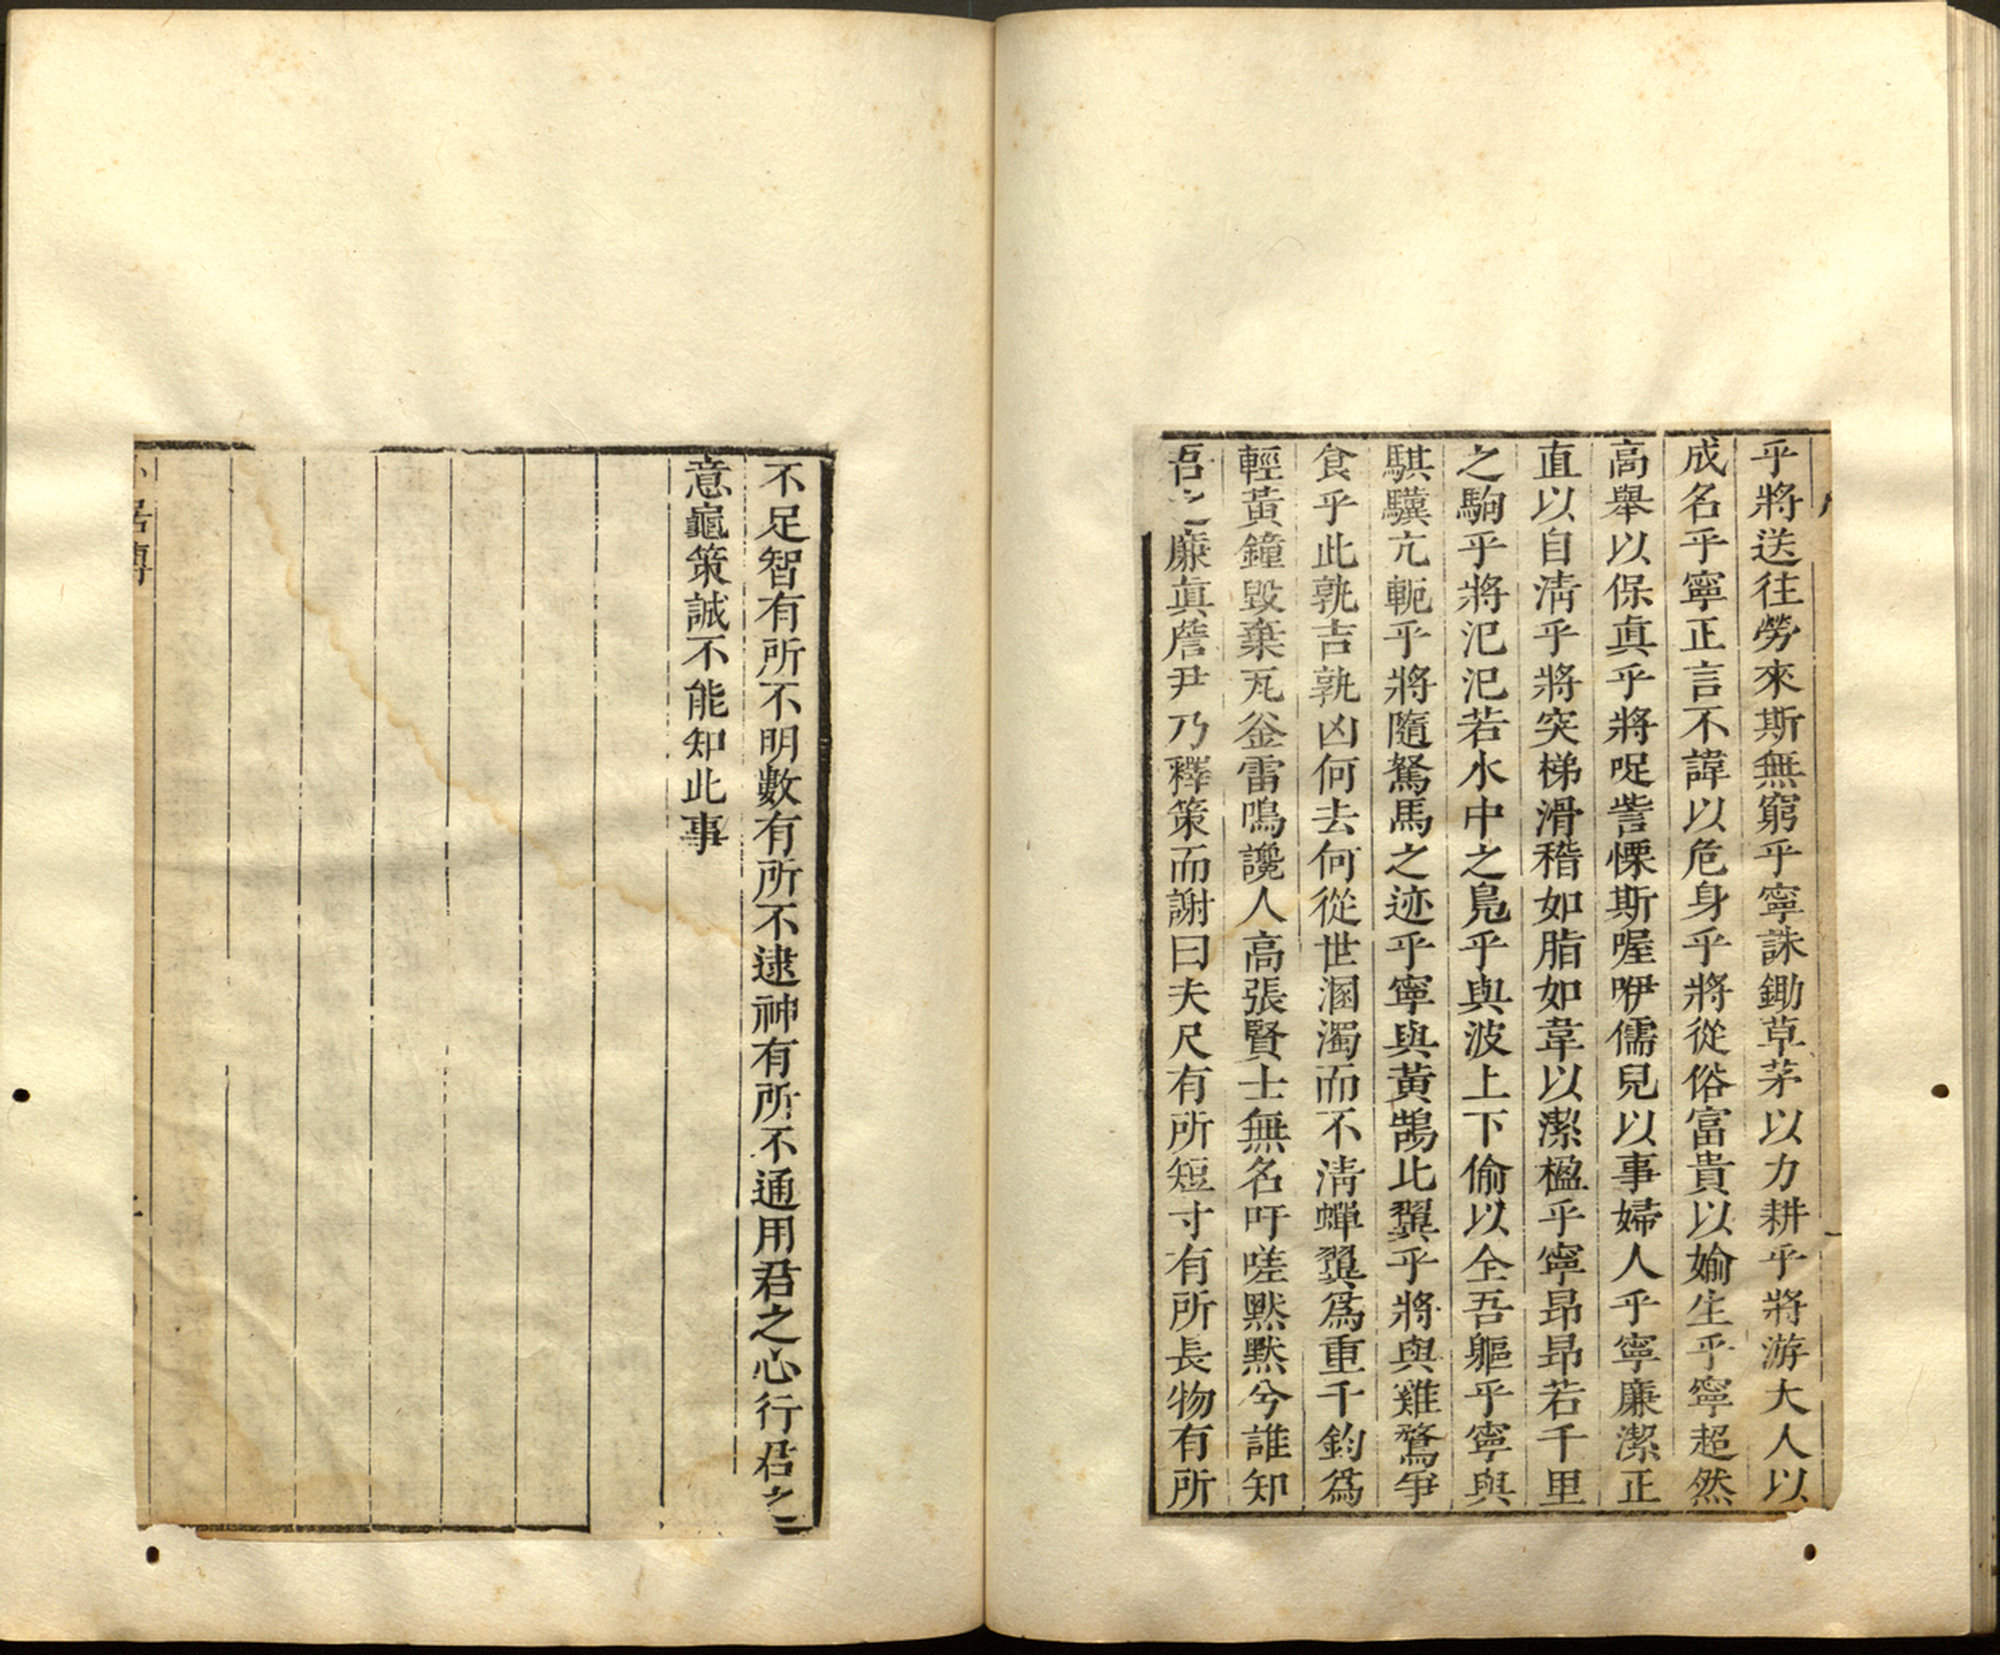 乎將送往勞來斯無窮乎寧誅鋤草茅以力耕乎將游大人以
成名乎寧正言不諱以危身乎將從俗富貴以媮生乎寧超然
高舉以保真乎將哫訾慄斯喔咿儒兒以事婦人乎寧廉潔正
直以自清乎將突梯滑稽如脂如韋以潔楹乎寧昂昂若千里
之駒乎將氾氾若水中之鳧乎與波上下偷以全吾軀乎寧與
騏驥亢軛乎將隨駑馬之迹乎寧與黃鵠比翼乎將與雞鶩爭
食乎此孰吉孰凶何去何從世溷濁而不清蟬翼為重千鈞為
輕黃鐘毀棄瓦釜雷鳴讒人高張賢士無名吁嗟默默兮誰知
吾之廉真詹尹乃釋策而謝曰夫尺有所短寸有所長物有所
不足智有所不明數有所不逮神有所不通用君之心行君之
意龜策誠不能知此事
居傳